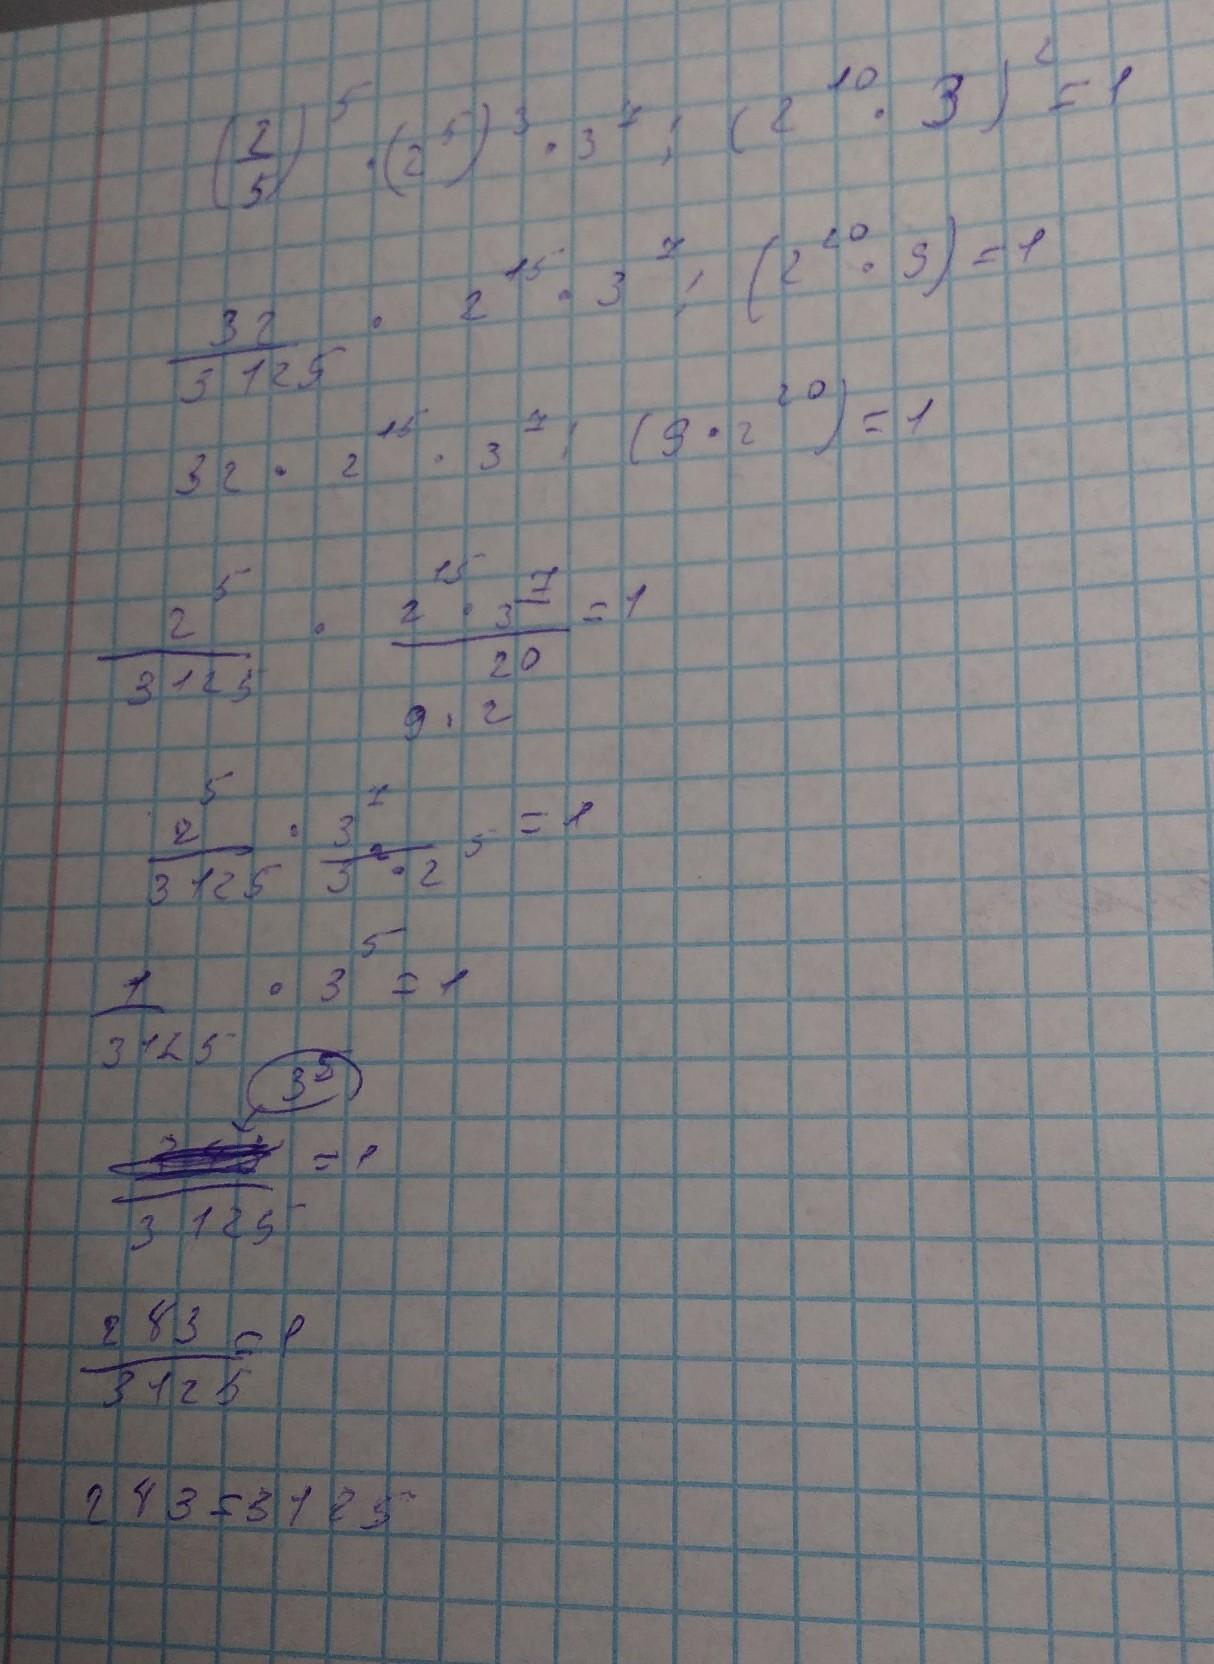 (2/5)^5 · (2^5)^3 · 3^7 : (2^10 · 3)^2 = 1
32/3125 · 2^15 · 3^7 : (2^20 · 9) = 1
32 · 2^15 · 3^7 : (9 · 2^20) = 1
2^5/3125 · 2^15 · 3^7/9 · 2^20 = 1
2^5/3125 · 3^7/3^2 · 2^5 = 1
1/3125 · 3^5 = 1
3^5
/3125 = 1
243/3125 = 1
243 = 3125